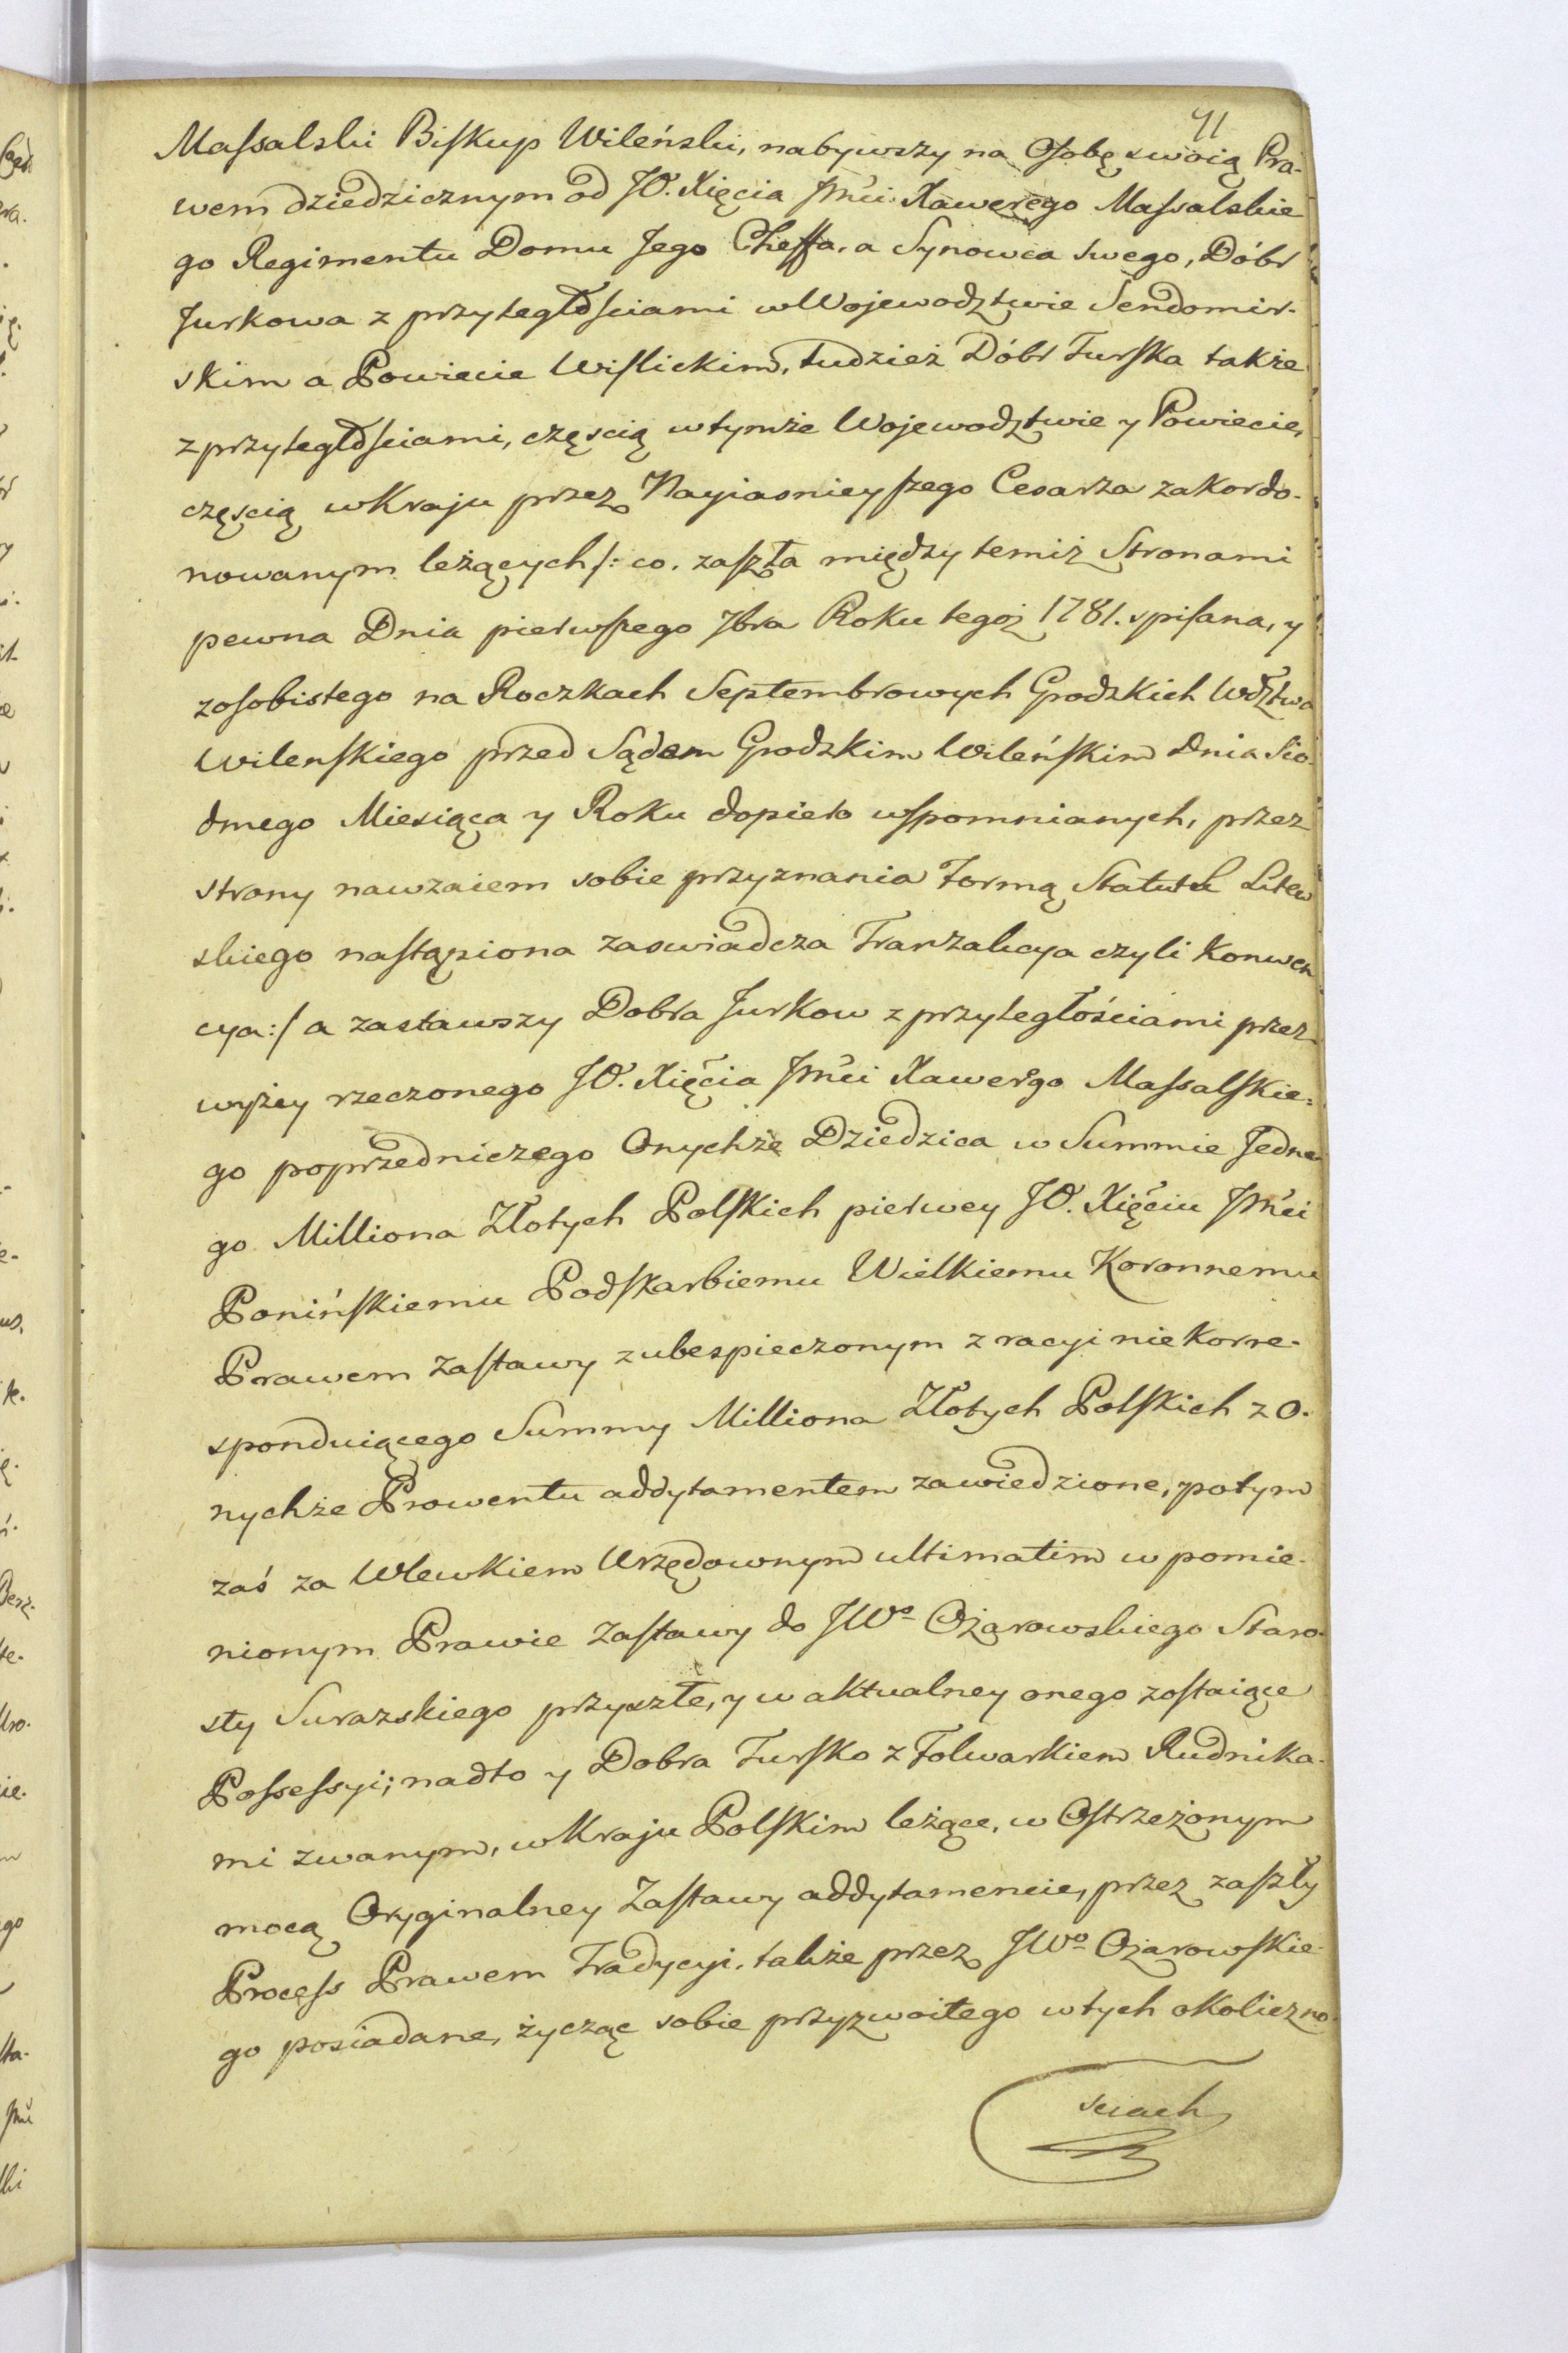 41
Massalski Biskup Wileński, nabywszy na Osobę swoią Pra-
wem dziedzicznym od JO. Xięcia Jmci Xawerego Massalskie
go Regimentu Domu Jego Cheffa, a Synowca swego, Dóbr
Jurkowa z przyległościami w Wojewodztwie Sendomir-
skim a Powiecie Wislickim, tudzież Dóbr Turska także
z przyległościami, częscią w tymże Wojewodztwie y Powiecie,
częscią w Kraju przez Nayiasnieyszego Cesarza zakordo-
nowanym leżących /: co. zaszła między temiż Stronami
pewna Dnia pierwszego 7bra Roku tegoż 1781. spisana, y
z osobistego na Roczkach Septembrowych Grodzkich Wdztwa
Wilenskiego przed Sądem Grodzkim Wileńskim Dnia Sio-
dmego Miesiąca y Roku dopiero wspomnianych, przez
strony nawzaiem sobie przyznania Formą Statutu Litew
skiego nastąpiona zaswiadcza Tranzakcya czyli Konwen
cya :/ a zastawszy Dobra Jurkow z przyległościami przez
wyżey rzeczonego JO. Xięcia Jmci Xawerego Massalskie-
go poprzedniczego Onychże Dziedzica w Summie Jedne-
go Milliona Złotych Polskich pierwey JO. Xięciu Jmci
Ponińskiemu Podskarbiemu Wielkiemu Koronnemu
Prawem Zastawy z ubespieczonym z racyi nie Korre-
sponduiącego Summy Milliona Złotych Polskich z O-
nychże Prowentu addytamentem zawiedzione, potym
zaś za Wlewkiem Urzędownym ultimatim w pomie-
nionym Prawie Zastawy do JWo Ożarowskiego Staro-
sty Surazskiego przyszłe, y w aktualney onego zostaiące
Possessyi; nadto y Dobra Tursko z Folwarkiem Rudnika-
mi zwanym, w Kraju Polskim leżące, w Ostrzeżonym
mocą Oryginalney Zastawy addytamencie, przez zaszły
Process Prawem Tradycyi, także przez JWo Ożarowskie-
go posiadane, życząc sobie przyzwoitego w tych okoliczno-
sciach